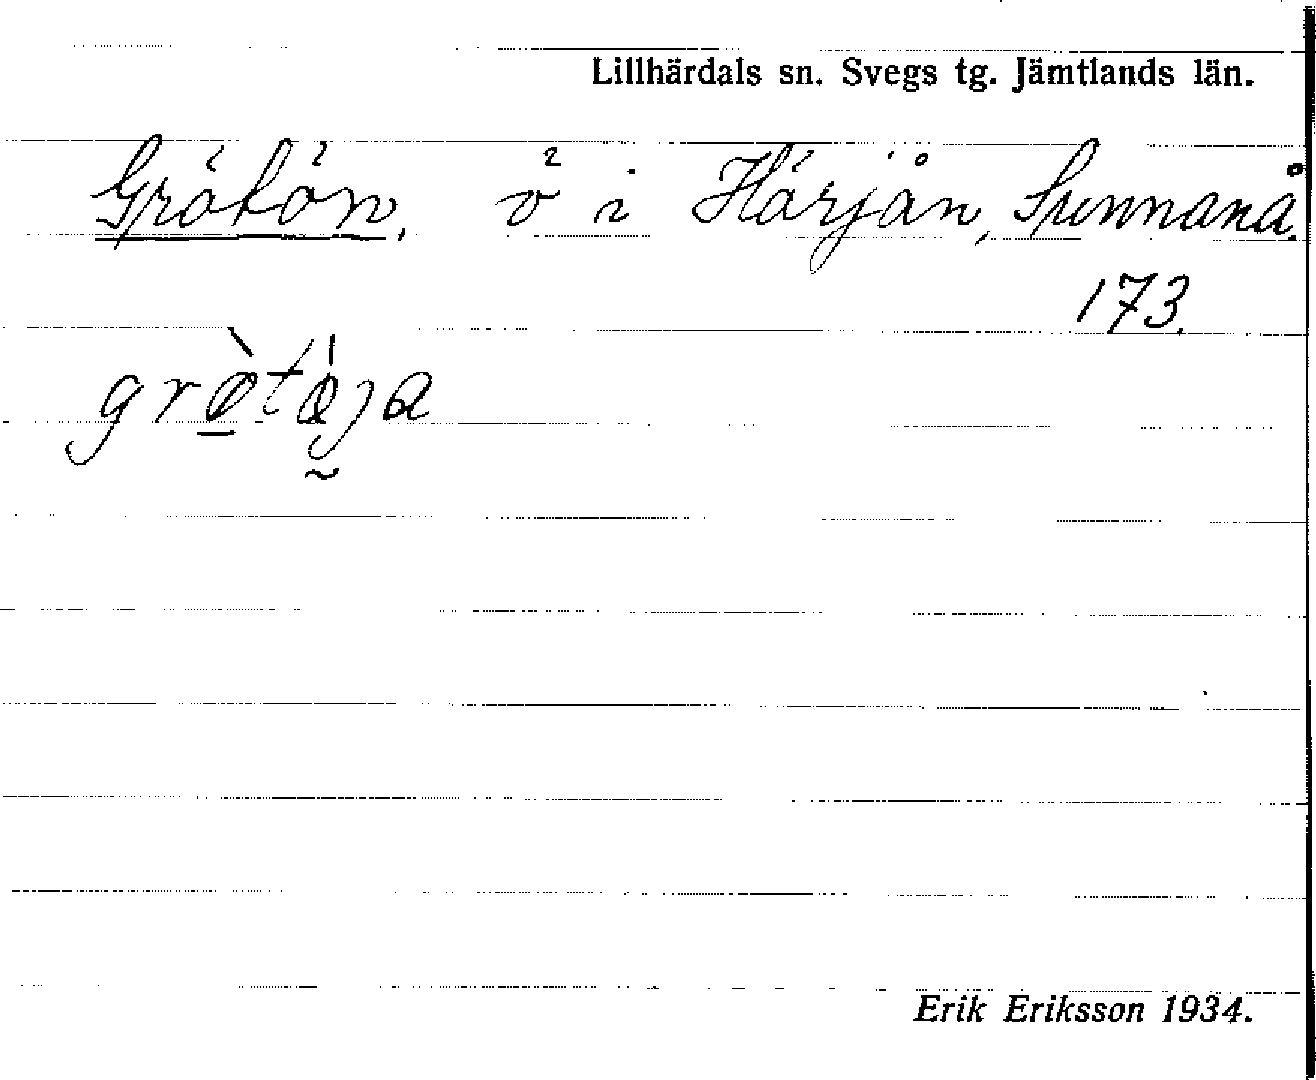 Lillhärdals sn. Svegs tg. Jämtlands län.
Grötön, ö i Härjån, Spunnanå.
173.
Erik Eriksson 1934.